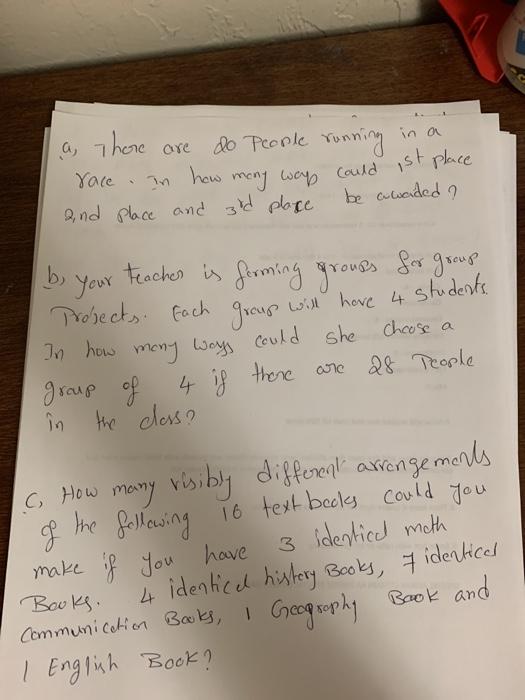 a, There are 20 People running in a
race. In how many ways could 1st place
2,nd place and 3rd place be awaded?
b, your teacher is forming groups for group
Projects. Each group will have 4 students.
In how many ways could she choose a
group of 4 if there are 28 People
in the class?
C, How many visibly different arrangements
of the following 16 text books could you
make if you have 3 identical math
Books. 4 identical history Books, 7 identical
Communication Books, 1 Geography Book and
1 English Book?